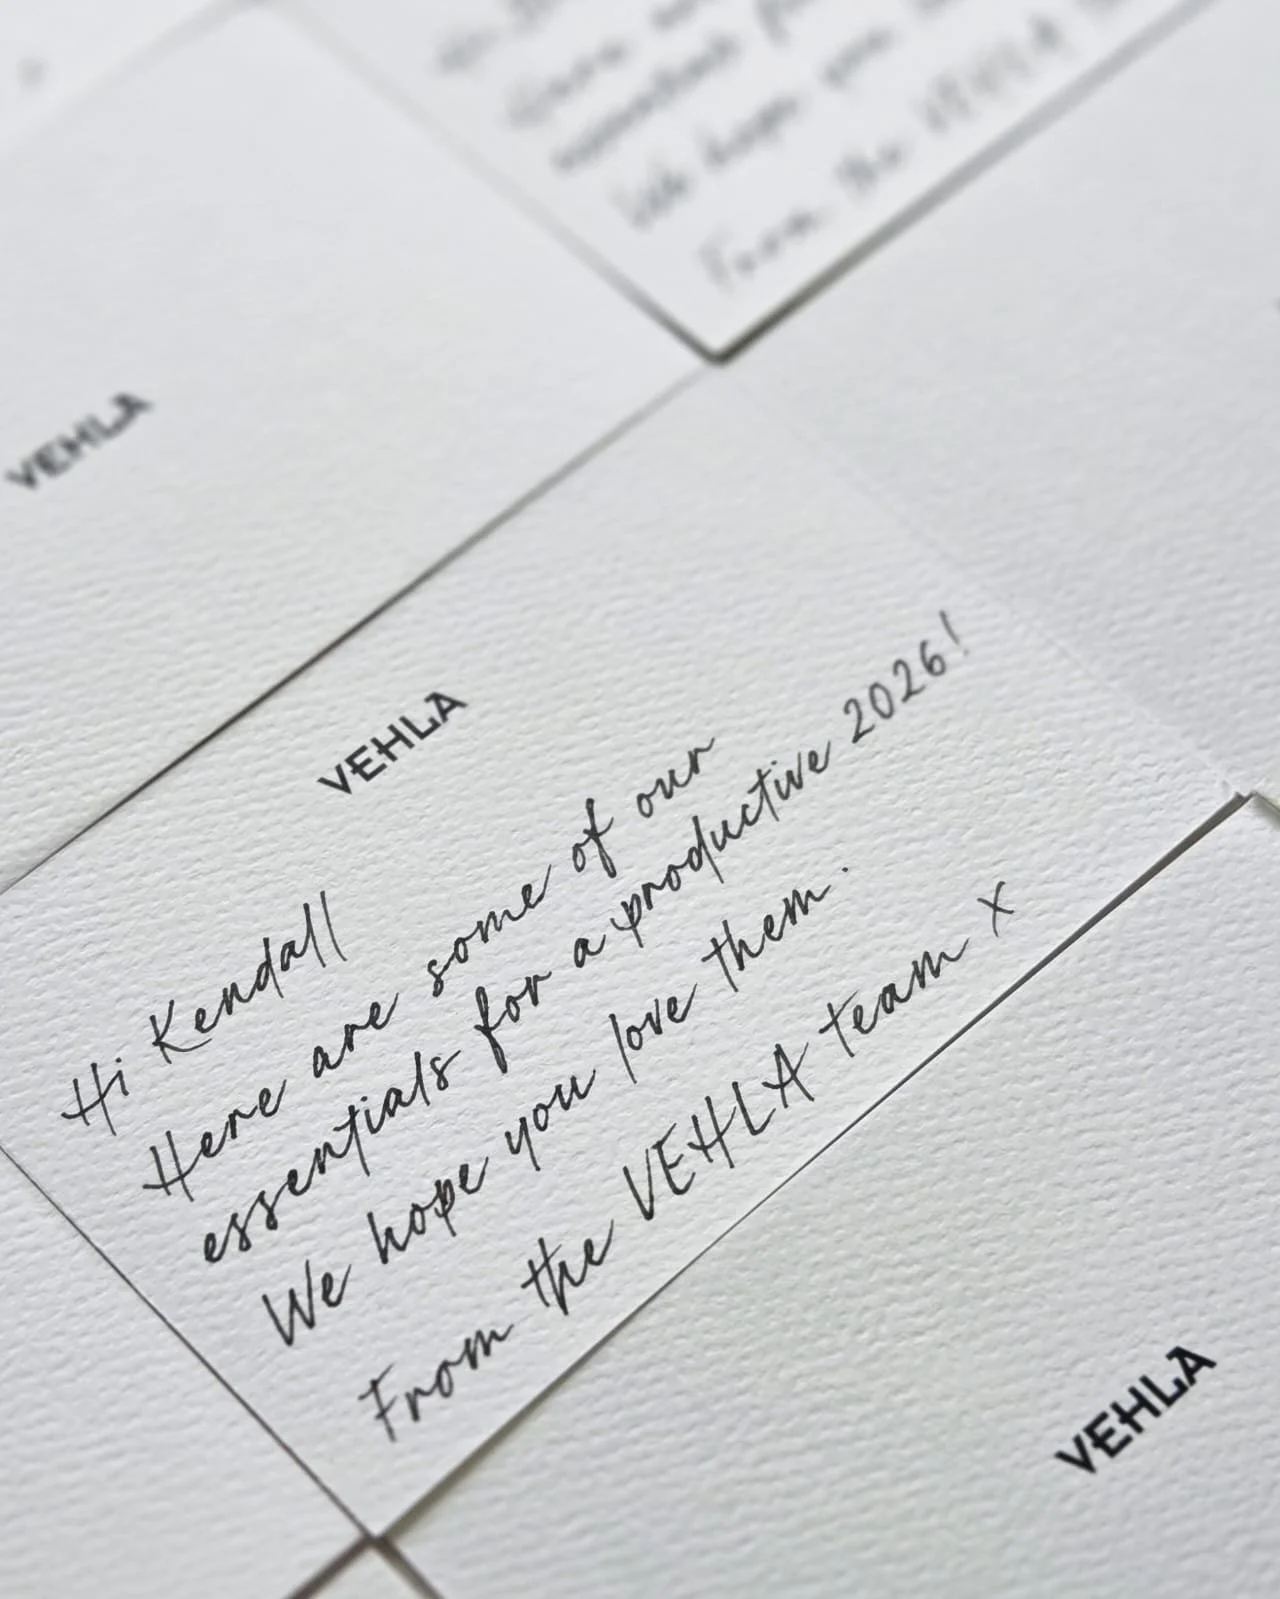 From the VEHLA
VEHLA
VEHLA
Hi Kendall
Here are some of our
essentials for a productive 2026!
We hope you love them.
From the VEHLA team x
VEHLA